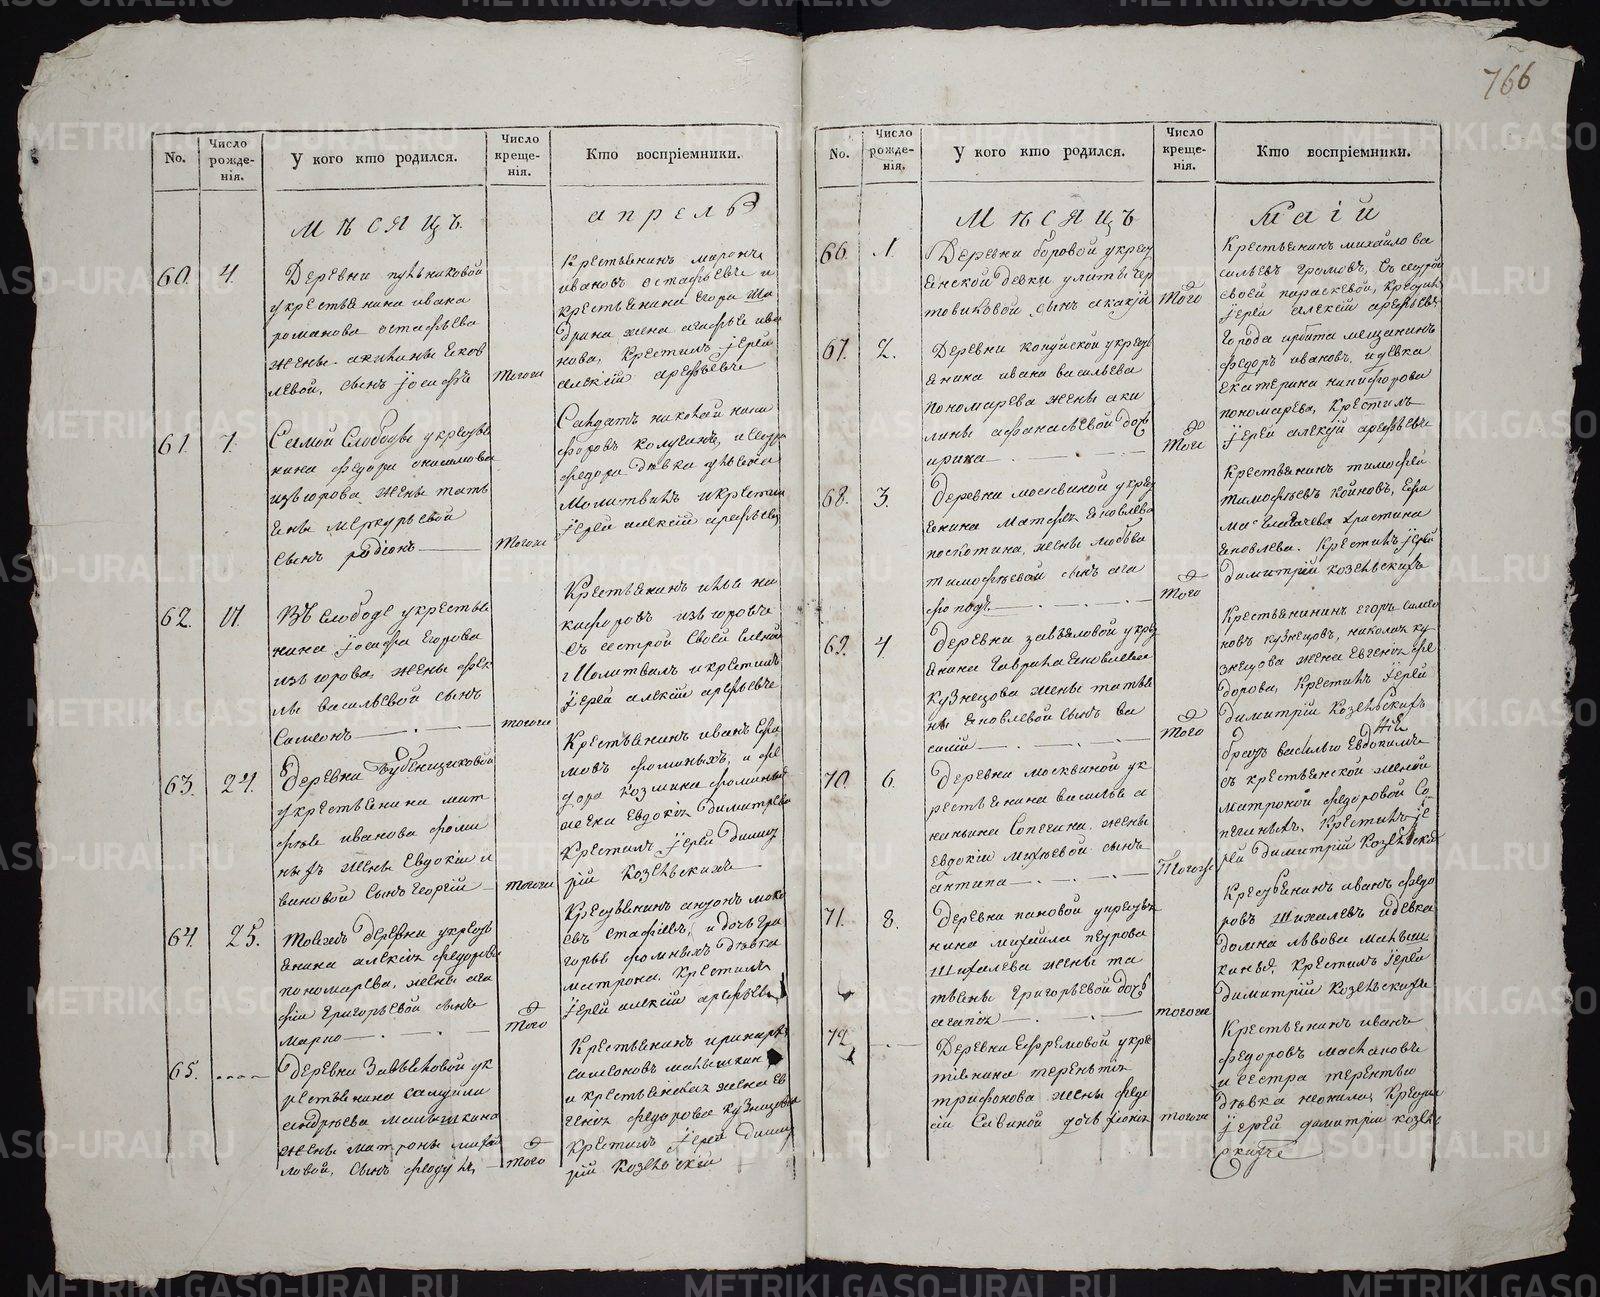 766
No.
Число рожде-нія.
У кого кто родился.
Число креще-нія.
Кто воспріемники.
мѣсяцъ
апрель
60.
4.
Деревни
укрестьянина ивана
романова остафьева
жены акилины яков
левой, сынъ іосифъ
тогожъ
крестьянинъ миронъ
ивановъ остафьевъ и
крестьянина егора ша
дрина жена агафья ива
нова, крестилъ іерей
алексій арефьевъ
61.
7.
Самой слободы укрестья
нина федора
изъгорова жены тать
яны меркурьевой
сынъ родіонъ
тогожъ
Салдатъ николай ники
форовъ и сестра
федора девка ульяна
молитвилъ и крестилъ
іерей алексій арефьевъ
62.
Въ слободе укрестья
нина іосифа егорова
изъгорова, жены фек
лы васильевой сынъ
Симеонъ
тогожъ
Крестьянинъ илья ни
кифоровъ изъгоровъ
съ сестрой своей еленой
молитвилъ и крестилъ
іерей алексій арефьевъ
63.
24.
Деревни
укрестьянина мат
фея иванова фоми
ныхъ жены евдокіи и
вановой сынъ георгій
тогожъ
Крестьянинъ иванъ ефи
мовъ фоминыхъ, и фе
дора козмина фоминыхъ
женка евдокія димитріева
крестилъ іерей димит
рій козельскихъ
64.
25.
тояжъ деревни укресть
янина алексія федорова
пономарева, жены ага
фіи григорьевой сынъ
марко
того
Крестьянинъ антонъ моке
евъ и дочь гри
горья фоминыхъ девка
матрона. крестилъ
іерей алексій арефьевъ
65.
Деревни завьяловой ук
рестьянина самуила
андреева малышкина
жены матроны михаи
ловой, сынъ федулъ
того
Крестьянинъ
симеоновъ малышкин
и крестьянская жена ев
генія федорова кузнецова
крестилъ іерей димит
рій козельскій
766
No.
Число рожде-нія.
У кого кто родился.
Число креще-нія.
Кто воспріемники.
мѣсяцъ
маій
66.
1.
Деревни боровой укрест
янской девки улиты чер
товиковой сынъ акакій
того
Крестьянинъ михайло ва
сильевъ громовъ, съ сестрой
своей параскевой, крестилъ
іерей алексій арефьевъ
67.
2.
Деревни укресть
янина ивана васильева
пономарева жены аки
лины афанасьевой дочь
ирина
того
Города ирбита мещанинъ
федоръ ивановъ, и девка
екатерина никифорова
пономарева, крестилъ
іерей алексій арефьевъ
68.
3.
Деревни москвиной укрест
янина матфея яковлева
поскотина, жены любови
тимофеевой сынъ ага
фоподъ
того
Крестьянинъ тимофей
тимофеевъ койновъ, ефи
ма христина
яковлева. крестилъ іерей
димитрій козельскихъ
69.
4.
Деревни завьяловой укрест
янина гаврила яковлева
кузнецова жены татья
ны яковлевой сынъ ва
силій
того
Крестьянининъ егоръ симео
новъ кузнецовъ, николая ку
знецова жена евгенія фе
дорова, крестилъ іерей
димитрій козельскихъ
70.
6.
Деревни москвиной ук
рестьянина василья а
наньина сопегина. жены
евдокіи михеевой сынъ
антипа
тогожъ
братъ василью евдокимъ
съ крестьянской женой
матроной федоровой со
пегиныхъ. крестилъ іе
рей димитрій козельскій
71.
8.
Деревни пановой укрестья
нина михаила петрова
шихалева жены та
тьяны григорьевой дочь
агапія
тогожъ
Крестьянинъ иванъ федо
ровъ шихалевъ и девка
домна львова малыш
киныхъ, крестилъ іерей
димитрій козельскихъ
72.
Деревни ефремовой укре
тіянина терентія
трифонова жены феодо
сіи савиной дочь
тогожъ
Крестьянинъ иванъ
федоровъ
и сестра терентью
девка неонила, крести
іерей димитрій козель
скихъ
METRIKI.GASO-URAL.RU